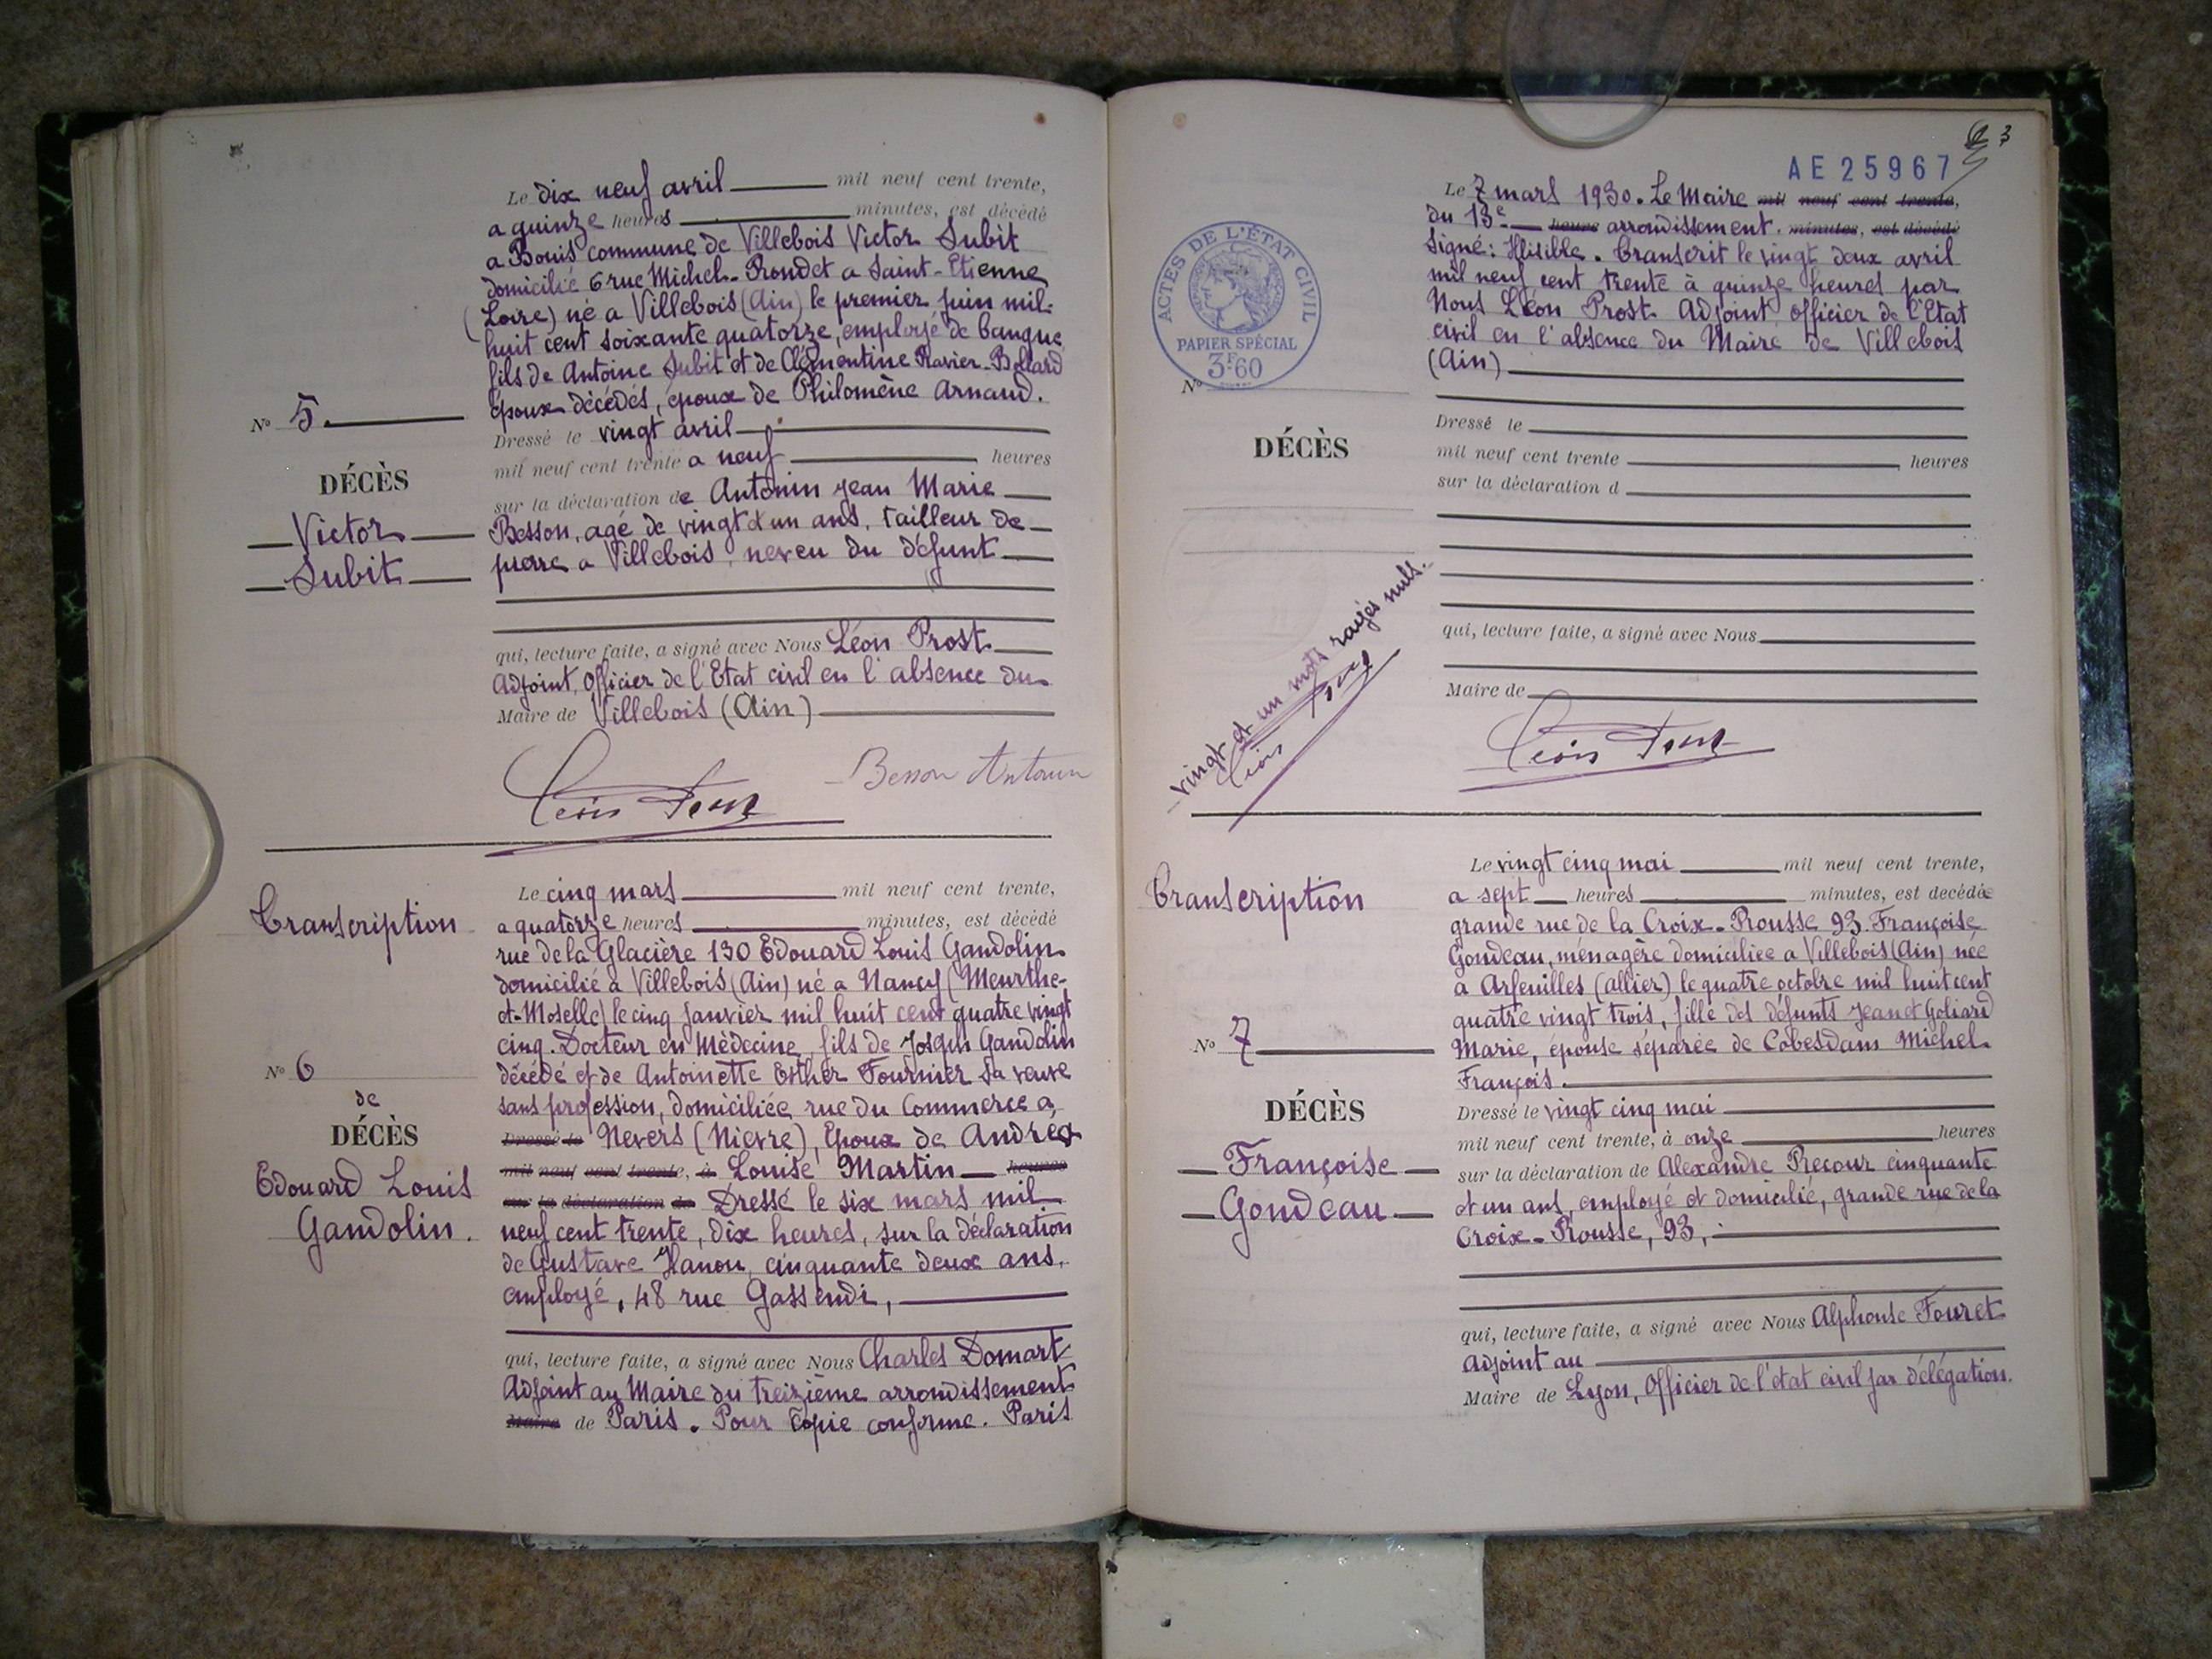 Le dix neuf avril mil neuf cent trente,
a quinze heures minutes, est décédé
a Bouis commune de Villebois Victor Subit
domicilié 6 rue Michel-Rondet a Saint-Etienne
(Loire) né a Villebois (Ain) le premier juin mil-
huit cent soixante quatorze, employé de banque
fils de Antoine Subit et de Clémentine Ravier-Bollard
époux décédés, époux de Philomène Arnaud.
Nº 5.
Dressé le vingt avril
mil neuf cent trente a neuf heures
DÉCÈS
sur la déclaration de Antonin Jean Marie
Victor
Besson, agé de vingt et un ans, tailleur de
Subit
pierre a Villebois, neveu du défunt
qui, lecture faite, a signé avec Nous Léon Prost
Adjoint, Officier de l'Etat civil en l'absence du
Maire de Villebois (Ain)
Léon Prost
Besson Antonin
Transcription
Le cinq mars mil neuf cent trente,
a quatorze heures minutes, est décédé
rue de la Glacière 130 Edouard Louis Gandolin
domicilié a Villebois (Ain) né a Nancy (Meurthe-
et-Moselle) le cinq janvier mil huit cent quatre vingt
cinq. Docteur en Médecine, fils de Joseph Gandolin
Nº 6
décédé et de Antoinette Esther Fournier sa veuve
de
sans profession, domiciliée rue du Commerce a
DÉCÈS
Dressé le Nevers (Nievre), Epoux de Andréa
mil neuf cent trente, à Louise Martin heures
Edouard Louis
sur la déclaration de Dressé le six mars mil
Gandolin.
neuf cent trente, dix heures, sur la déclaration
de Gustave Hanon, cinquante deux ans,
employé, 48 rue Gassendi,
qui, lecture faite, a signé avec Nous Charles Domart
Adjoint au Maire du treizième arrondissement
Maire de Paris. Pour copie conforme. Paris
3
AE 25967
Le 7 mars 1930. Le Maire mil neuf cent trente,
du 13e heure arrondissement. minutes, est décédé
Signé: Illisible. Transcrit le vingt deux avril
mil neuf cent trente à quinze heures par
Nous Léon Prost Adjoint Officier de l'Etat
civil en l'absence du Maire de Villebois
(Ain)
ACTES DE L'ÉTAT CIVIL
PAPIER SPÉCIAL
3F60
Nº
DÉCÈS
Dressé le
mil neuf cent trente heures
sur la déclaration d
vingt et un mots rayés nuls.
Léon Prost
qui, lecture faite, a signé avec Nous
Maire de
Léon Prost
Transcription
Le vingt cinq mai mil neuf cent trente,
a sept heures minutes, est decédée
grande rue de la Croix-Rousse 93. Françoise
Gondeau, ménagère domiciliée a Villebois (Ain) née
a Arfeuilles (allier) le quatre octobre mil huit cent
quatre vingt trois, fille des défunts Jean et Goliard
Nº 7
Marie, épouse séparée de Cobesdam Michel
François.
DÉCÈS
Dressé le vingt cinq mai
mil neuf cent trente, à onze heures
Françoise
sur la déclaration de Alexandre Precour cinquante
Gondeau
et un ans, employé et domicilié, grande rue de la
Croix-Rousse, 93,
qui, lecture faite, a signé avec Nous Alphonse Fouret
Adjoint au
Maire de Lyon, Officier de l'état civil par délégation.